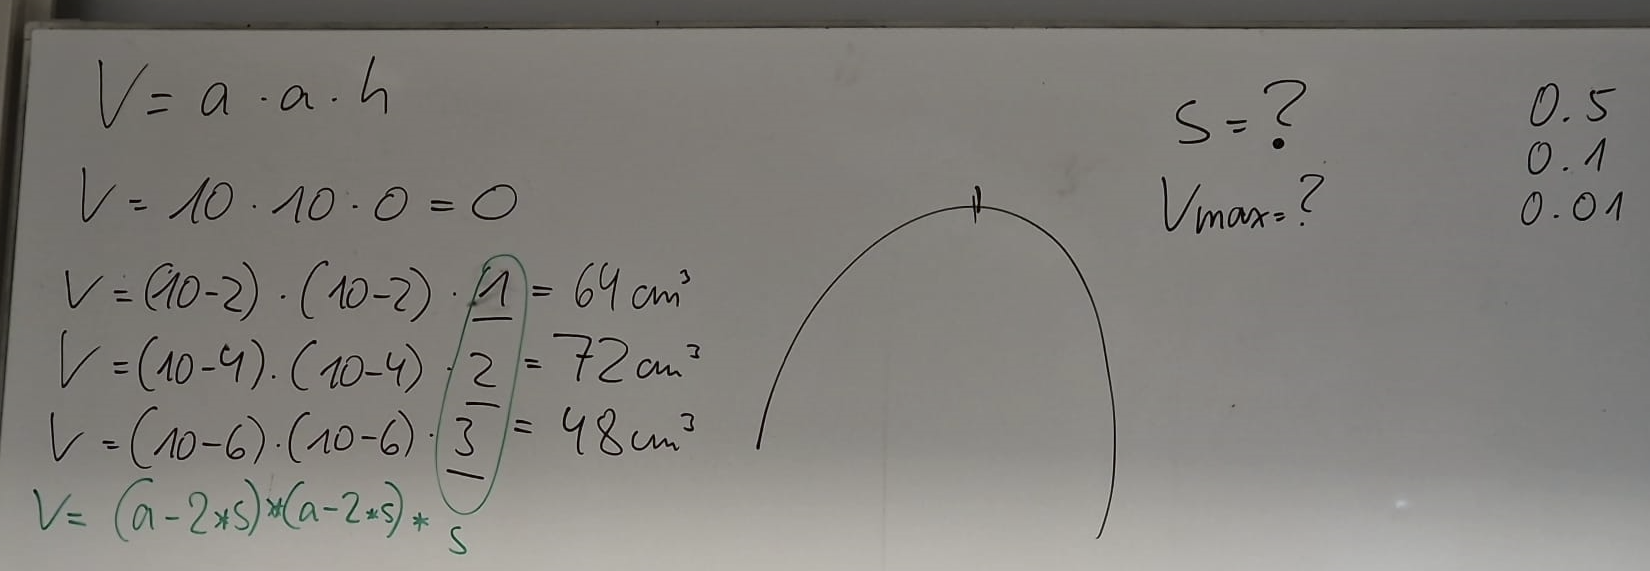 V = a · a · h
V = 10 · 10 · 0 = 0
V = (10-2) · (10-2) · 1 = 64 cm³
V = (10-4) · (10-4) · 2 = 72 cm³
V = (10-6) · (10-6) · 3 = 48 cm³
V = (a-2*s)*(a-2*s)* s
s = ?
Vmax = ?
0.5
0.1
0.01